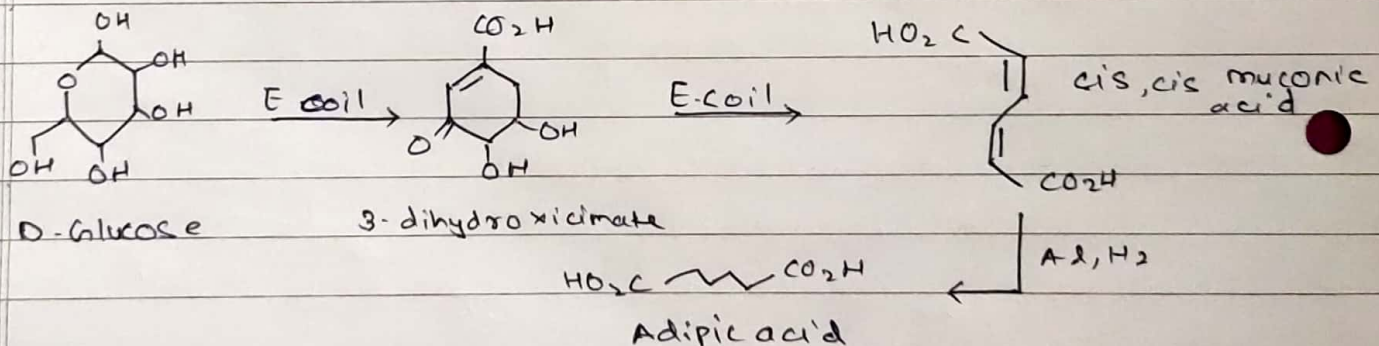 OH
OH
O
OH
OH
OH
D-Glucose
E coil
CO2H
O
OH
OH
3-dihydroxicimate
E-coil
HO2C
CO2H
cis, cis muconic
acid
Al, H2
HO2C CO2H
Adipic acid